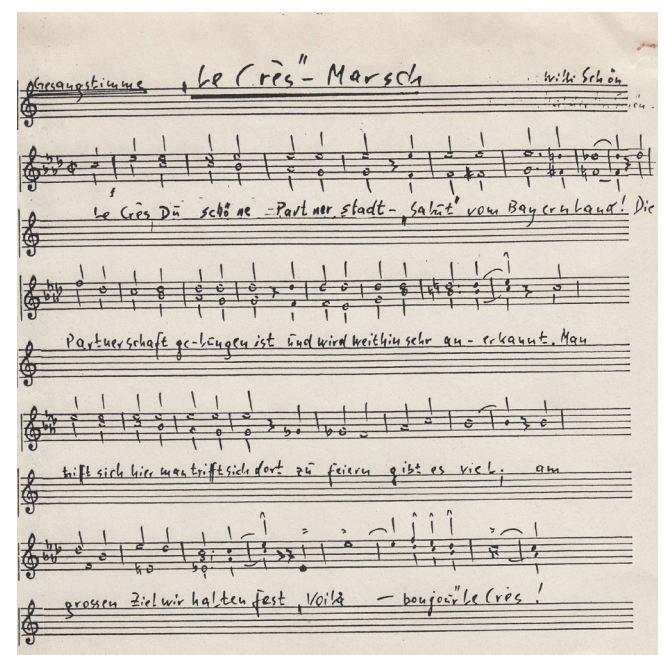 Gesangstimme „Le Crès" - Marsch Willi Schön
Le Crès, Du schöne - Partnerstadt - „Salut" vom Bayernland! Die
Partnerschaft ge-lungen ist und wird weithin sehr an - erkannt. Man
trifft sich hier man trifft sich dort zu feiern gibt es viel; am
grossen Ziel wir halten fest, „Voilà - bonjour" Le Crès!